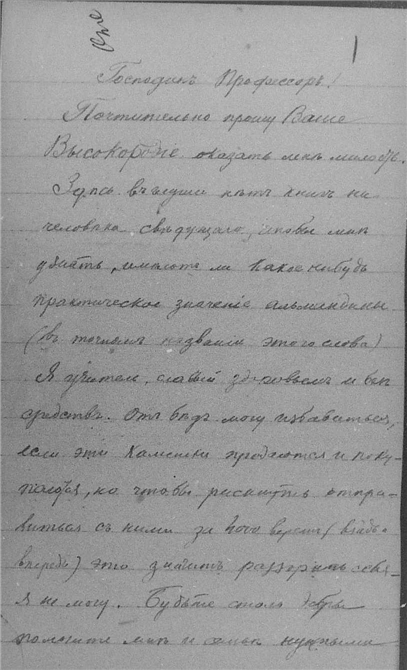 1
Господинъ Профессоръ!
Почтительно прошу Ваше
Высокородіе оказать мнѣ милость.
Здѣсь въ глуши нѣтъ книгъ ни
человѣка свѣдущаго, чтобы мнѣ
узнать, имѣютъ ли какое нибудь
практическое значеніе альмандины
(въ точномъ названіи этого слова)
Я учитель, слабый здоровьемъ и безъ
средствъ. Отъ бѣдъ могу избавиться,
если эти камешки продаются и поку-
паются, но чтобы рискнуть отпра-
виться съ ними за 1000 верстъ (взадъ и
впередъ) это значитъ раззорить себя.
Я не могу. Будьте столь добры
помогите мнѣ и семьѣ нужными